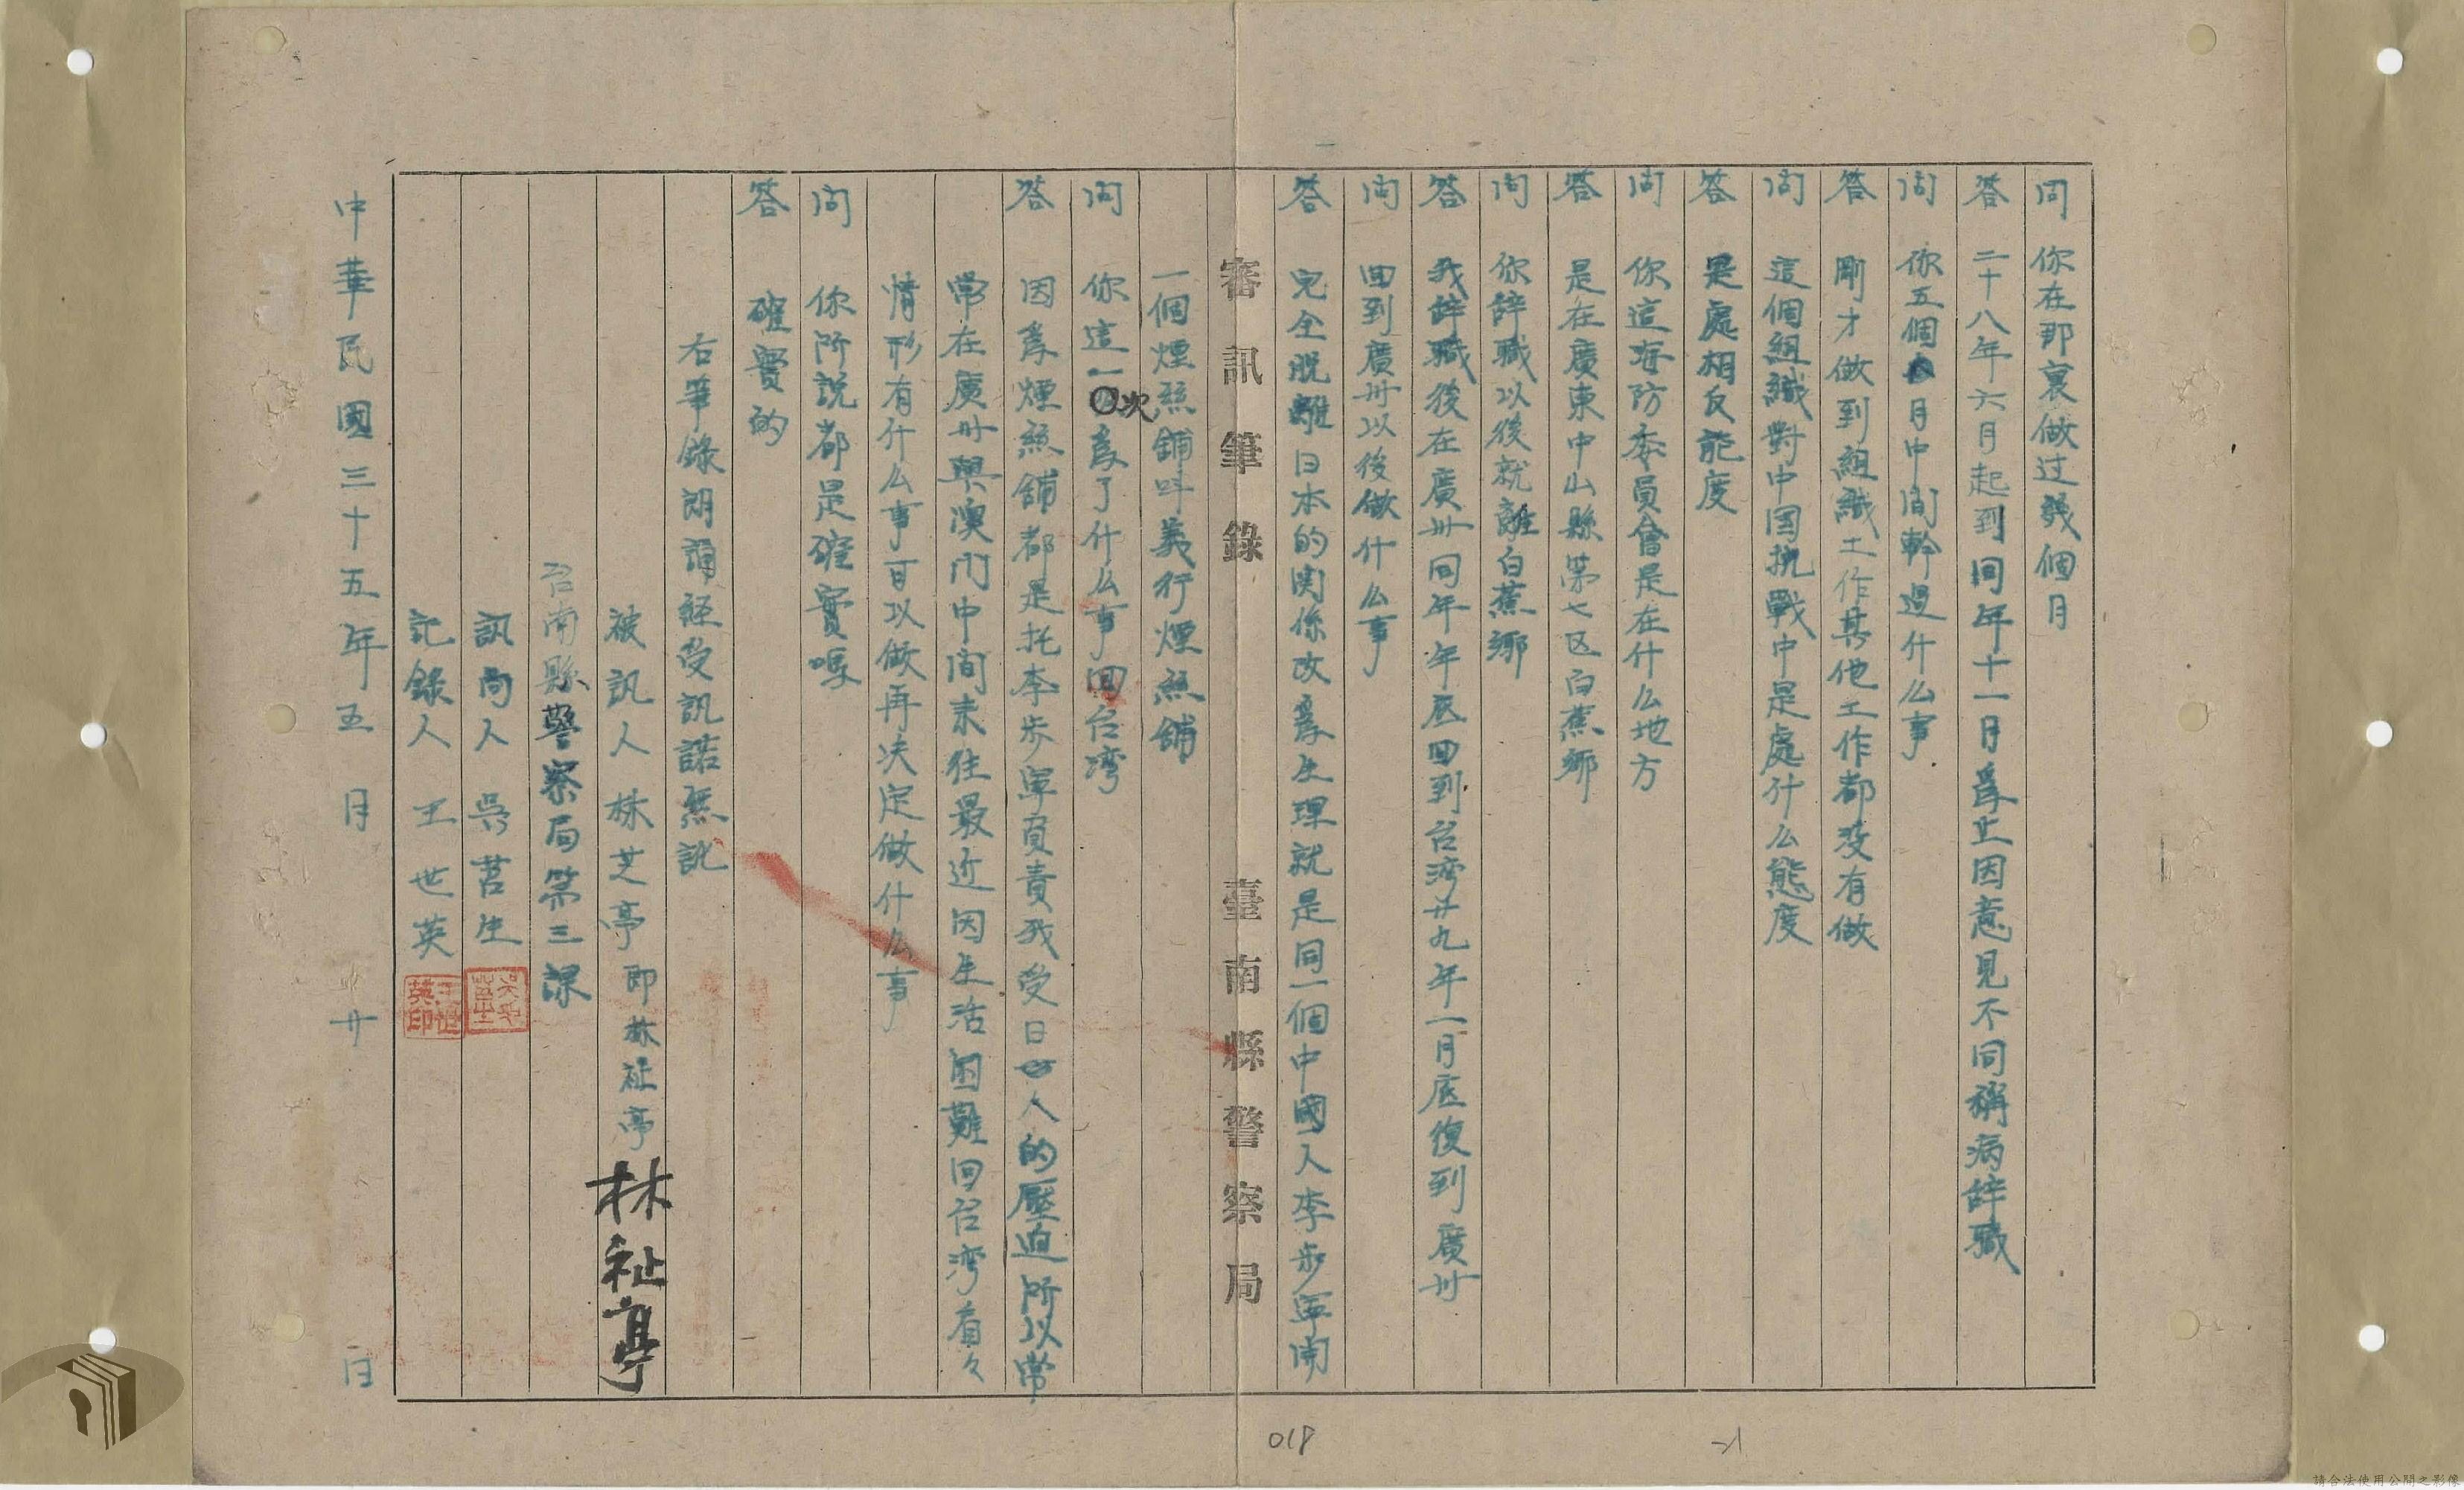 問　你在那裏做过幾個月
答　二十八年六月起到同年十一月為止因意見不同稱病辞職
問　你五個月中间幹過什么事
答　剛才做到組織工作其他工作都没有做
問　這個組織對中国抗戰中是處什么態度
答　是處相反態度
問　你這海防委員會是在什么地方
答　是在廣東中山縣第七区白蕉鄉
問　你辞職以後就離白蕉鄉
答　我辞職後在廣州同年年底回到台湾廿九年一月底復到廣州
問　回到廣州以後做什么事
答　完全脱離日本的関係改為生理就是同一個中國人李步軍開
審訊筆錄　臺南縣警察局
一個煙絲鋪叫義行煙絲舖
問　你這一次為了什么事回台湾
答　因為煙絲舖都是托李步軍負責我受日人的壓迫所以常
常在廣州與澳门中间来往最近因生活困難回台湾看々
情形有什么事可以做再决定做什么事
問　你所説都是確實嗎
答　確實的
右筆錄朗誦経受訊諾無訛
被訊人林芝亭即林祉亭　林祉亭
台南縣警察局第三課
訊问人　吳莒生
記錄人　王世英
王世英印
中華民國三十五年五月廿日
018
請合法使用公開之影像